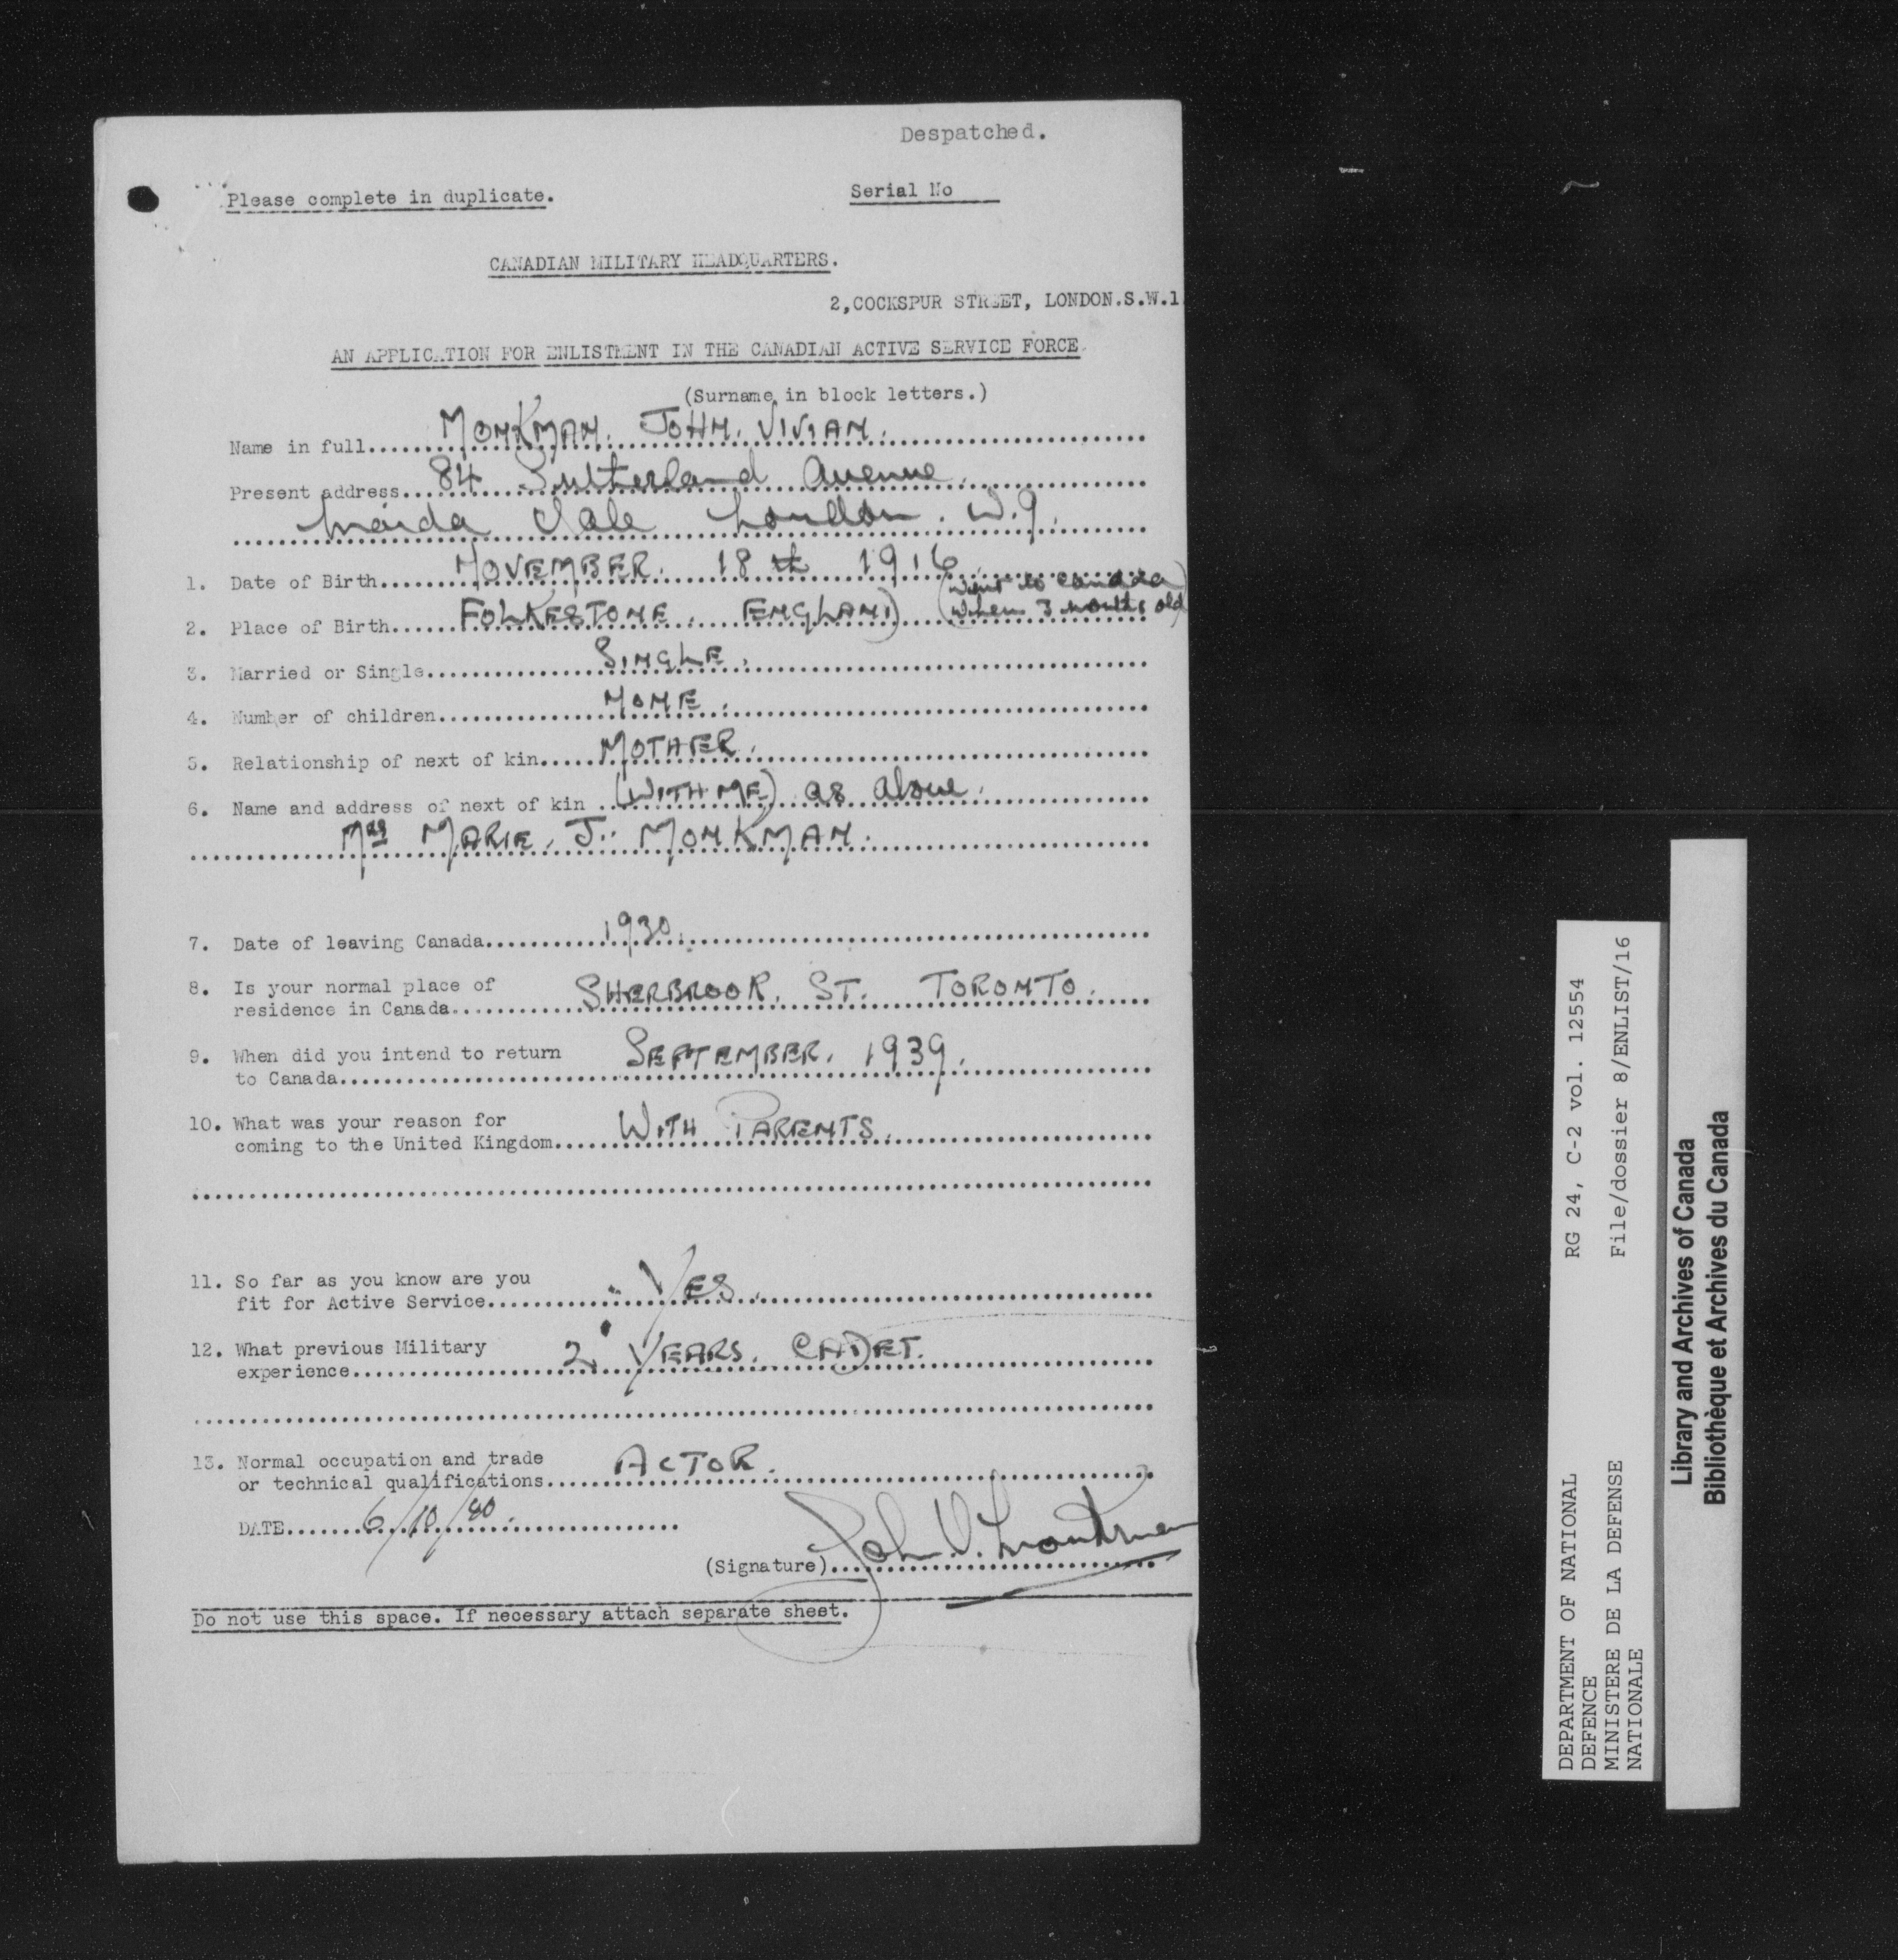 Despatched.
Please complete in duplicate.
Serial No
CANADIAN MILITARY HEADQUARTERS.
2,COCKSPUR STREET, LONDON.S.W.1
AN APPLICATION FOR ENLISTMENT IN THE CANADIAN ACTIVE SERVICE FORCE.
(Surname in block letters.)
Name in full.....MONKMAN. JOHN. VIVIAN.
Present address....84 Sutherland Avenue
Maida Vale London. W.9.
1. Date of Birth.....NOVEMBER. 18th 1916
(went to Canada
2. Place of Birth.....FOLKESTONE, ENGLAND
when 3 months old)
3. Married or Single.....SINGLE.
4. Number of children.....NONE.
5. Relationship of next of kin.....MOTHER.
6. Name and address of next of kin...(WITH ME) as above.
Mrs MARIE. J. MONKMAN.
7. Date of leaving Canada.....1930.
8. Is your normal place of
residence in Canada.....SHERBROOK. ST. TORONTO.
9. When did you intend to return
to Canada.....SEPTEMBER. 1939.
10. What was your reason for
coming to the United Kingdom.....WITH PARENTS.
11. So far as you know are you
fit for Active Service.....YES.
12. What previous Military
experience.....2 YEARS. CADET.
13. Normal occupation and trade
or technical qualifications.....ACTOR.
DATE.....6/10/40.
(Signature).....John V. Monkman
Do not use this space. If necessary attach separate sheet.
DEPARTMENT OF NATIONAL DEFENCE
RG 24, C-2 vol. 12554
MINISTERE DE LA DEFENSE NATIONALE
File/dossier 8/ENLIST/16
Library and Archives of Canada
Bibliothèque et Archives du Canada